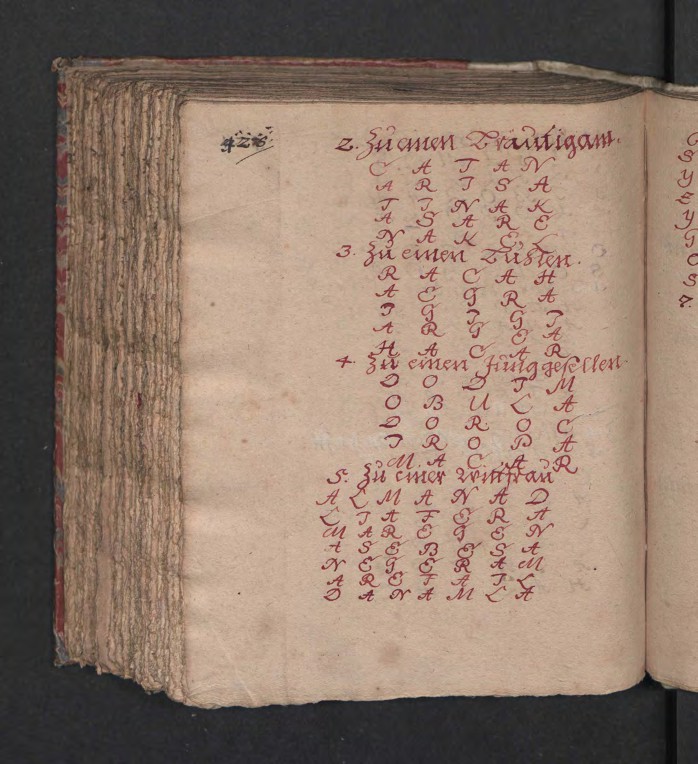 428
2. Zu einen Bräutigam.
C A T A N
A R T S A
T I N A K
A S A R E
N A K E L
3. Zu einen Buhlen.
R A C A H
A E G R A
I G I G I
A R G E A
H A C A R
4. Zu einen Junggesellen.
D O D I M
O B U L A
D O R O C
I R O B A
M A C A R
5. Zu einer Wittfrau
A L M A N A D
L I A F E R A
M A R E G E N
A S E B E S A
N E G E R A M
A R E F A I L
D A N A M L A